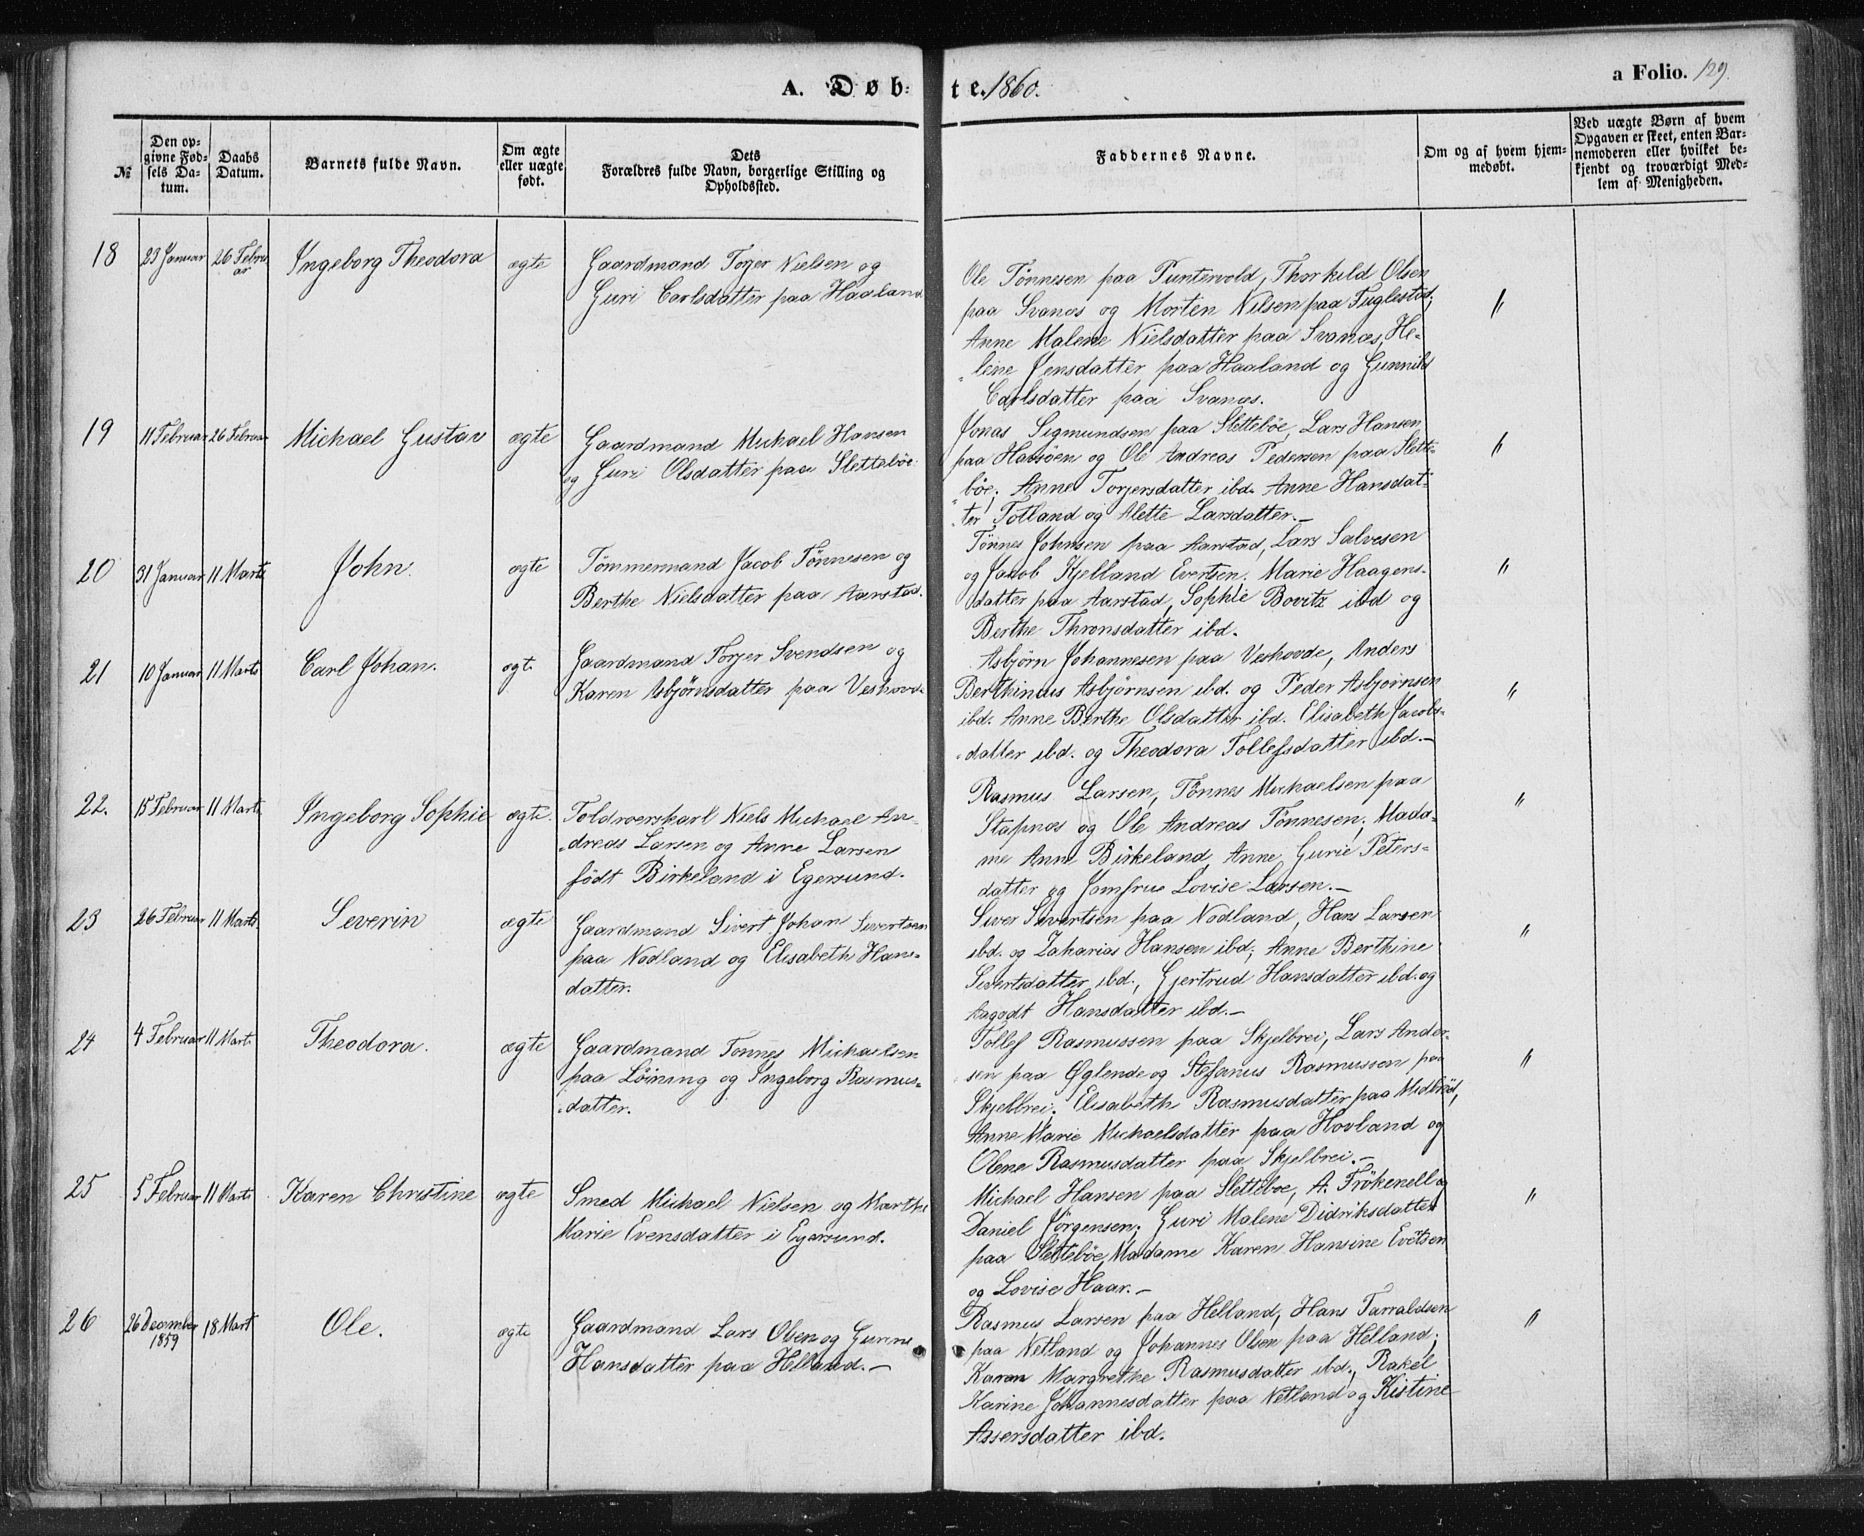 A. Døb=
te. 1860.
a Folio. 129.
№
Den op=
givne Fød=
sels Da=
tum.
Daabs
Datum.
Barnets fulde Navn.
Om ægte
eller uægte
født.
Dets
Forældres fulde Navn, borgerlige Stilling og
Opholdssted.
Faddernes Navne.
Om og af hvem hjem=
medøbt.
Ved uægte Børn af hvem
Opgaven er skeet, enten Bar=
nemoderen eller hvilket be=
kjendt og troværdigt Med=
lem af Menigheden.
18
23 Januar
26 Febru
ar
Ingeborg Theodora
ægte
Gaardmand Torjer Nielsen og
Guri Carlsdatter paa Haaland
Ole Tönnesen paa Puntervold, Thorkild Olsen
paa Svanæs og Morten Nilsen paa Fuglestad;
Anne Malene Nielsdatter paa Svanæs, He-
lene Jensdatter paa Haaland og Gunnild
Carlsdatter paa Svanæs.
"
19
11 Februar
26 Februar
Michael Gustav
ægte
Gaardmand Michael Hansen
og Guri Olsdatter paa Slettebøe
Jonas Sigmundsen paa Slettebøe, Lars Hansen
paa Havsöen og Ole Andreas Pedersen paa Slette-
böe; Anne Torjersdatter ibd. Anne Hansdat-
ter Totland og Alette Larsdatter.-
"
20
31 Januar
11 Marts
John.
ægte
Tömmermand Jacob Tönnesen og
Berthe Nielsdatter paa Aarstad.
Tönnes Johnsen paa Aarstad, Lars Salvesen
og Jacob Kjelland Evertsen; Marie Haagens-
datter paa Aarstad, Sophie Bovitz ibd og
Berthe Thronsdatter ibd.
"
21
10 Januar
11 Marts
Carl Johan.
ægt.
Gaardmand Torjer Svendsen og
Karen Asbjørnsdatter paa Veshovd.
Asbjørn Johannesen paa Veshovde, Anders
Berthinius Asbjørnsen ibd. og Peder Asbjørnsen
ibd. Anne Berthe Olsdatter ibd. Elisabeth Jacobs-
datter ibd. og Theodora Tollefsdatter ibd.-
"
22.
15 Februar
11 Marts
Ingeborg Sophie
ægte.
Toldroerskarl Niels Michael An-
dreas Larsen og Anne Larsen
födt Birkeland i Egersund.
Rasmus Larsen, Tönnes Michaelsen paa
Stapnæs og Ole Andreas Tönnesen; Mada-
me Anne Birkeland, Anne Gurie Peters-
datter og Jomfrue Lovise Larsen.-
"
23
26 Februar
11 Marts
Severin
ægte
Gaardmand Sivert Johan Sivertsen
paa Nodland og Elisabeth Hans-
datter.
Siver Sivertsen paa Nodland, Hans Larsen
ibd. og Zakarias Hansen ibd; Anne Berthine
Sivertsdatter ibd., Gjertrud Hansdatter ibd. og
Aagodt Hansdatter ibd.-
"
24
4 Februar
11 Marts
Theodora.
ægte
Gaardmand Tönnes Michaelsen
paa Löining og Ingeborg Rasmus-
datter.
Tollef Rasmussen paa Skjelbrei, Lars Ander-
sen paa Øglende og Stefanus Rasmussen paa
Skjelbrei; Elisabeth Rasmusdatter paa Midbröd,
Anne Marie Michaelsdatter paa Hovland og
Olene Rasmusdatter paa Skjelbrei.-
"
25
5 Februar
11 Marts
Karen Christine
ægte
Smed Michael Nielsen og Marthe
Marie Evensdatter i Egersund.
Michael Hansen paa Slettebøe, A. Frökenell og
Daniel Jörgensen; Guri Malene Didriksdatter
paa Slettebøe, Madame Karen Hansine Evetsen
og Lovise Haar.-
"
26
26 December
1859
18 Mart
Ole.
ægte
Gaardmand Lars Olsen og Gurine
Hansdatter paa Helland.-
Rasmus Larsen paa Helland, Hans Tarraldsen
paa Netland og Johannes Olsen paa Helland;
Karen Margrethe Rasmusdatter ibd., Rakel
Karine Johannesdatter paa Netland og Kistine
Assersdatter ibd.
"